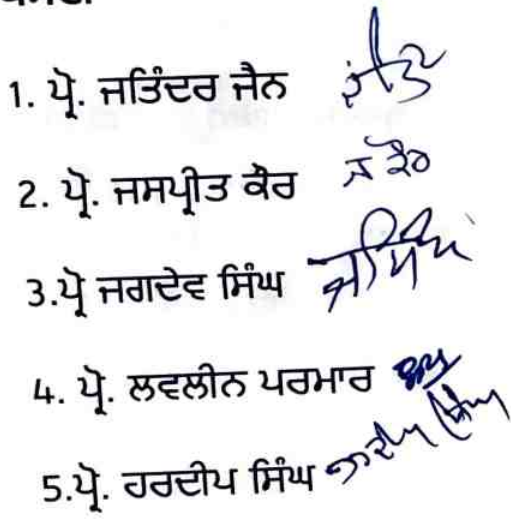 1. ਪ੍ਰੋ. ਜਤਿੰਦਰ ਜੈਨ
2. ਪ੍ਰੋ. ਜਸਪ੍ਰੀਤ ਕੌਰ ਜ ਕੌਰ
3.ਪ੍ਰੋ ਜਗਦੇਵ ਸਿੰਘ
4. ਪ੍ਰੋ. ਲਵਲੀਨ ਪਰਮਾਰ
5.ਪ੍ਰੋ. ਹਰਦੀਪ ਸਿੰਘ